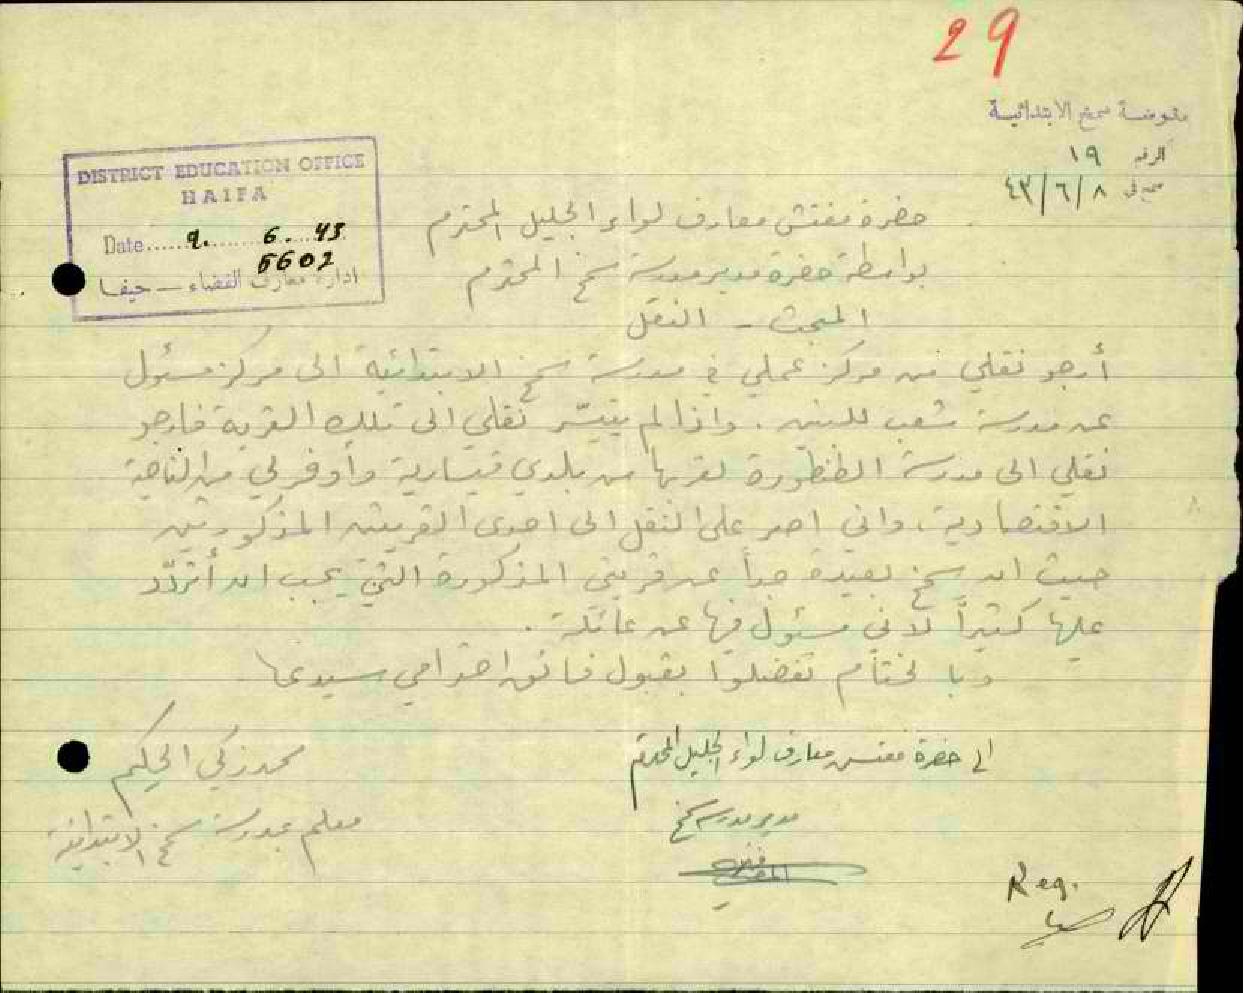 29
الابتدائية
الرقم ١٩
٤٣/٦/٨
DISTRICT EDUCATION OFFICE
HAIFA
Date...... 9. 6. 43
5602
ادارة معارف القضاء — حيفا
حضرة مفتش معارف لواء الجليل المحترم
بواسطة حضرة مدير مدرسة سمخ المحترم
المبحث - النقل
أرجو نقلي من مركز عملي في مدرسة سمخ الابتدائية الى مركز مسئول
عن مدرسة شعب للبنين. واذا لم يتيسّر نقلي الى تلك القرية فارجو
نقلي الى مدرسة الطنطورة لقربها من بلدي قيسارية وأوفر لي من الناحية
الاقتصادية. واني اصر على النقل الى احدى القريتين المذكورتين
حيث ان سمخ بعيدة جداً عن قريتي المذكورة التي يجب ان أتردّد
عليها كثيراً لاني مسئول فيها عن عائلة.
وبالختام تفضلوا بقبول فائق احترامي سيدي
محمد زكي الحكيم
معلم بمدرسة سمخ الابتدائية
الى حضرة مفتش معارف لواء الجليل المحترم
مدير مدرسة سمخ
Reg.